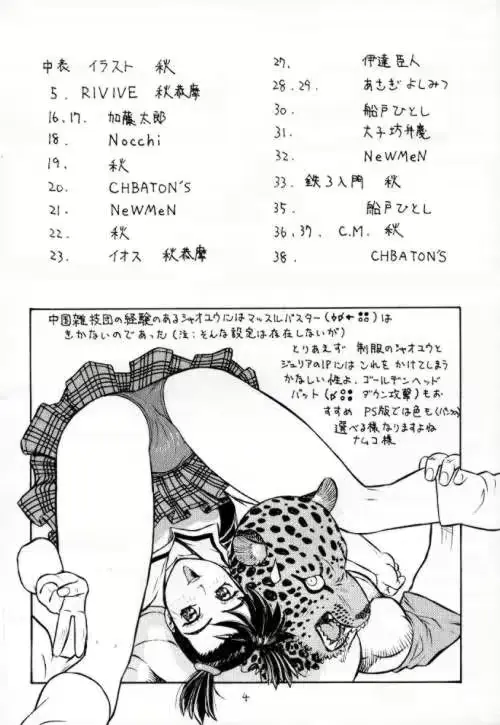 中表 イラスト 秋
5. RIVIVE 秋恭摩
16,17. 加藤太郎
18. Nocchi
19. 秋
20. CHBATON'S
21. NeWMeN
22. 秋
23. イオス 秋恭摩
27. 伊達臣人
28.29. あさぎよしみつ
30. 船戸ひとし
31. 太子坊弁慶
32. NeWMeN
33. 鉄3入門 秋
35. 船戸ひとし
36,37. C.M. 秋
38. CHBATON'S
中国雑技団の経験のあるシャオユウにはマッスルバスター()は
きかないのであった(注:そんな設定は存在しないが)
とりあえず 制服のシャオユウと
ジュリアの1Pには これを かけてしまう
かなしい性よ。ゴールデンヘッド
バット( ダウン攻撃)もお
すすめ PS版では色も()
選べる様なりますよね
ナムコ様
4